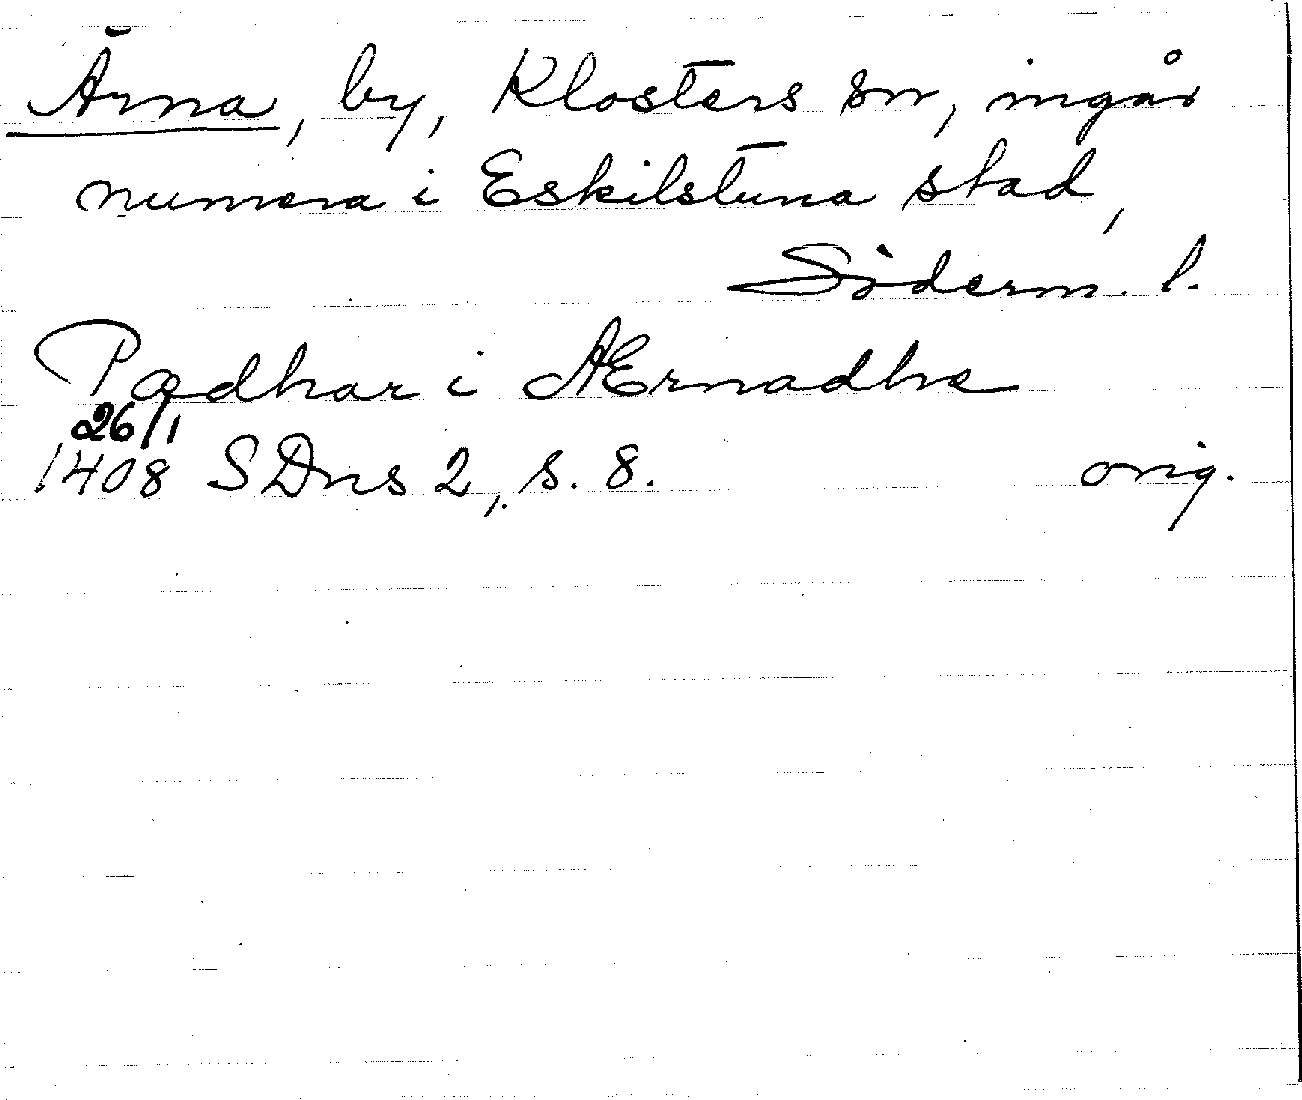 Ärna, by, Klosters sn, ingår
numera i Eskilstuna stad,
Söderm. l.
Pædhar i AErnadhe
26/1
1408 SDns 2, s. 8. orig.